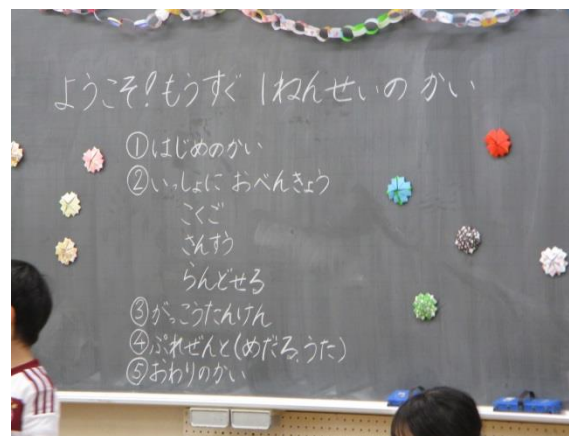 ようこそ!もうすぐ 1ねんせいの かい
①はじめのかい
②いっしょに おべんきょう
こくご
さんすう
らんどせる
③がっこうたんけん
④ぷれぜんと(めだる、うた)
⑤おわりのかい